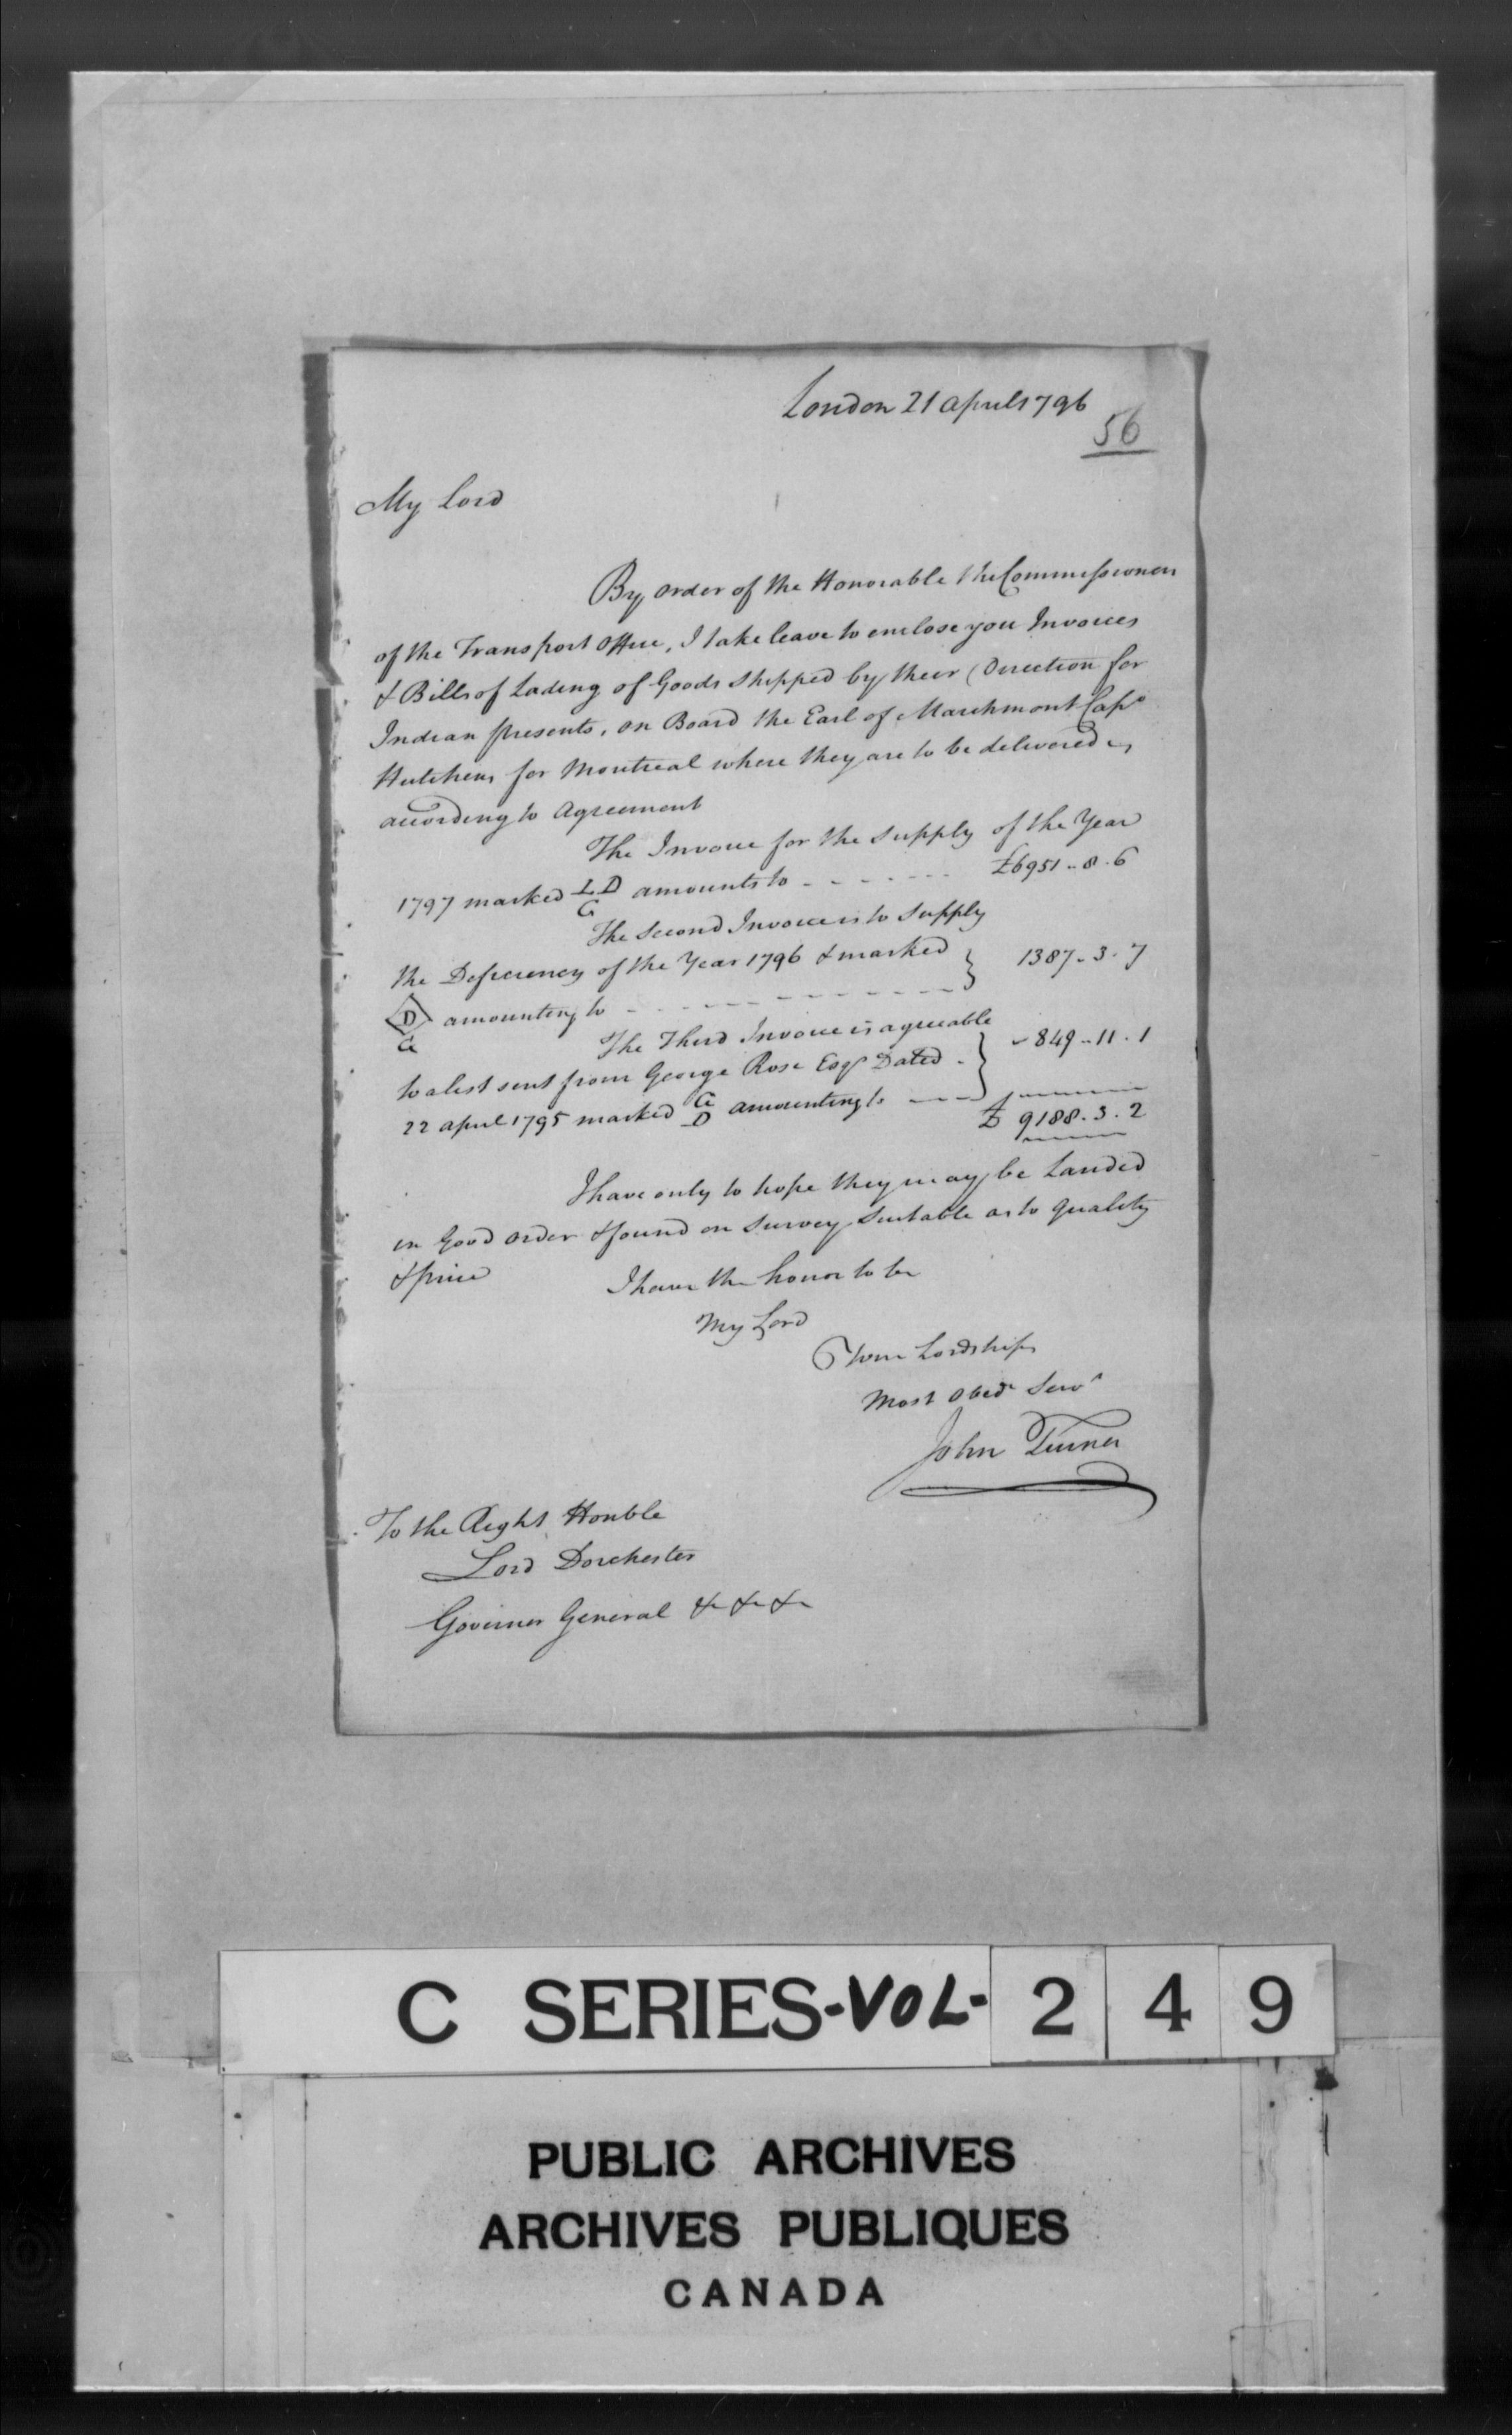 London 21 april 1796
56
My Lord
By order of the Honorable the Commissioners
of the Transport Office, I take leave to enclose you Invoices
& Bills of Lading of Goods shipped by their Direction for
Indian presents, on Board the Earl of Marchmont Capt
Hutchens for Montreal where they are to be delivered
according to Agreement
The Invoice for the Supply of the Year
1797 marked LD amounts to - - - - - - £6951 .. 8 . 6
G
The Second Invoice is to Supply
the Deficiency of the Year 1796 & marked } 1387 . 3 . 7
D amounting to - - - - - - - - - -
G
The Third Invoice is agreeable
to a list sent from George Rose Esqr Dated - } 849 .. 11 . 1
22 april 1795 marked G amounting to - - -
D
£ 9188 . 3 . 2
I have only to hope they may be Landed
in Good order & found on Survey Suitable as to quality
& price
I have the honor to be
My Lord
Your Lordships
Most Obedt Servt
John Turner
To the Right Honble
Lord Dorchester
Governor General &c &c &c
C SERIES-VOL-249
PUBLIC ARCHIVES
ARCHIVES PUBLIQUES
CANADA